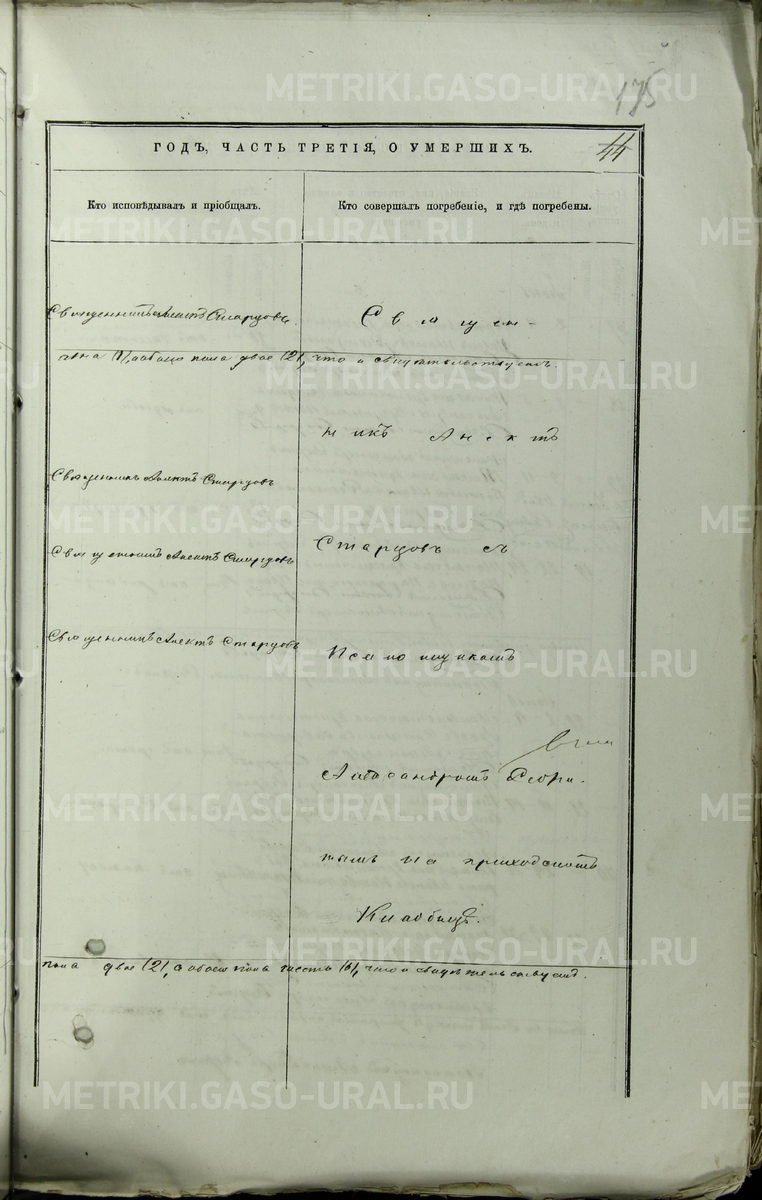 175
ГОДЪ, ЧАСТЬ ТРЕТІЯ, О УМЕРШИХЪ.
44
Кто исповѣдывалъ и пріобщалъ.
Кто совершалъ погребеніе, и гдѣ погребены.
Священникъ Старцовъ.
Священ-
пола двое (2), что и свидѣтельствуемъ.
никъ
Священникъ Старцовъ
Священникъ Старцовъ
Старцовъ съ
Священникъ Старцовъ
Александромъ
на приходскомъ
Кладбищѣ.
пола двое (2), а обоего пола шесть (6), что и свидѣтельствуемъ.
METRIKI.GASO-URAL.RU